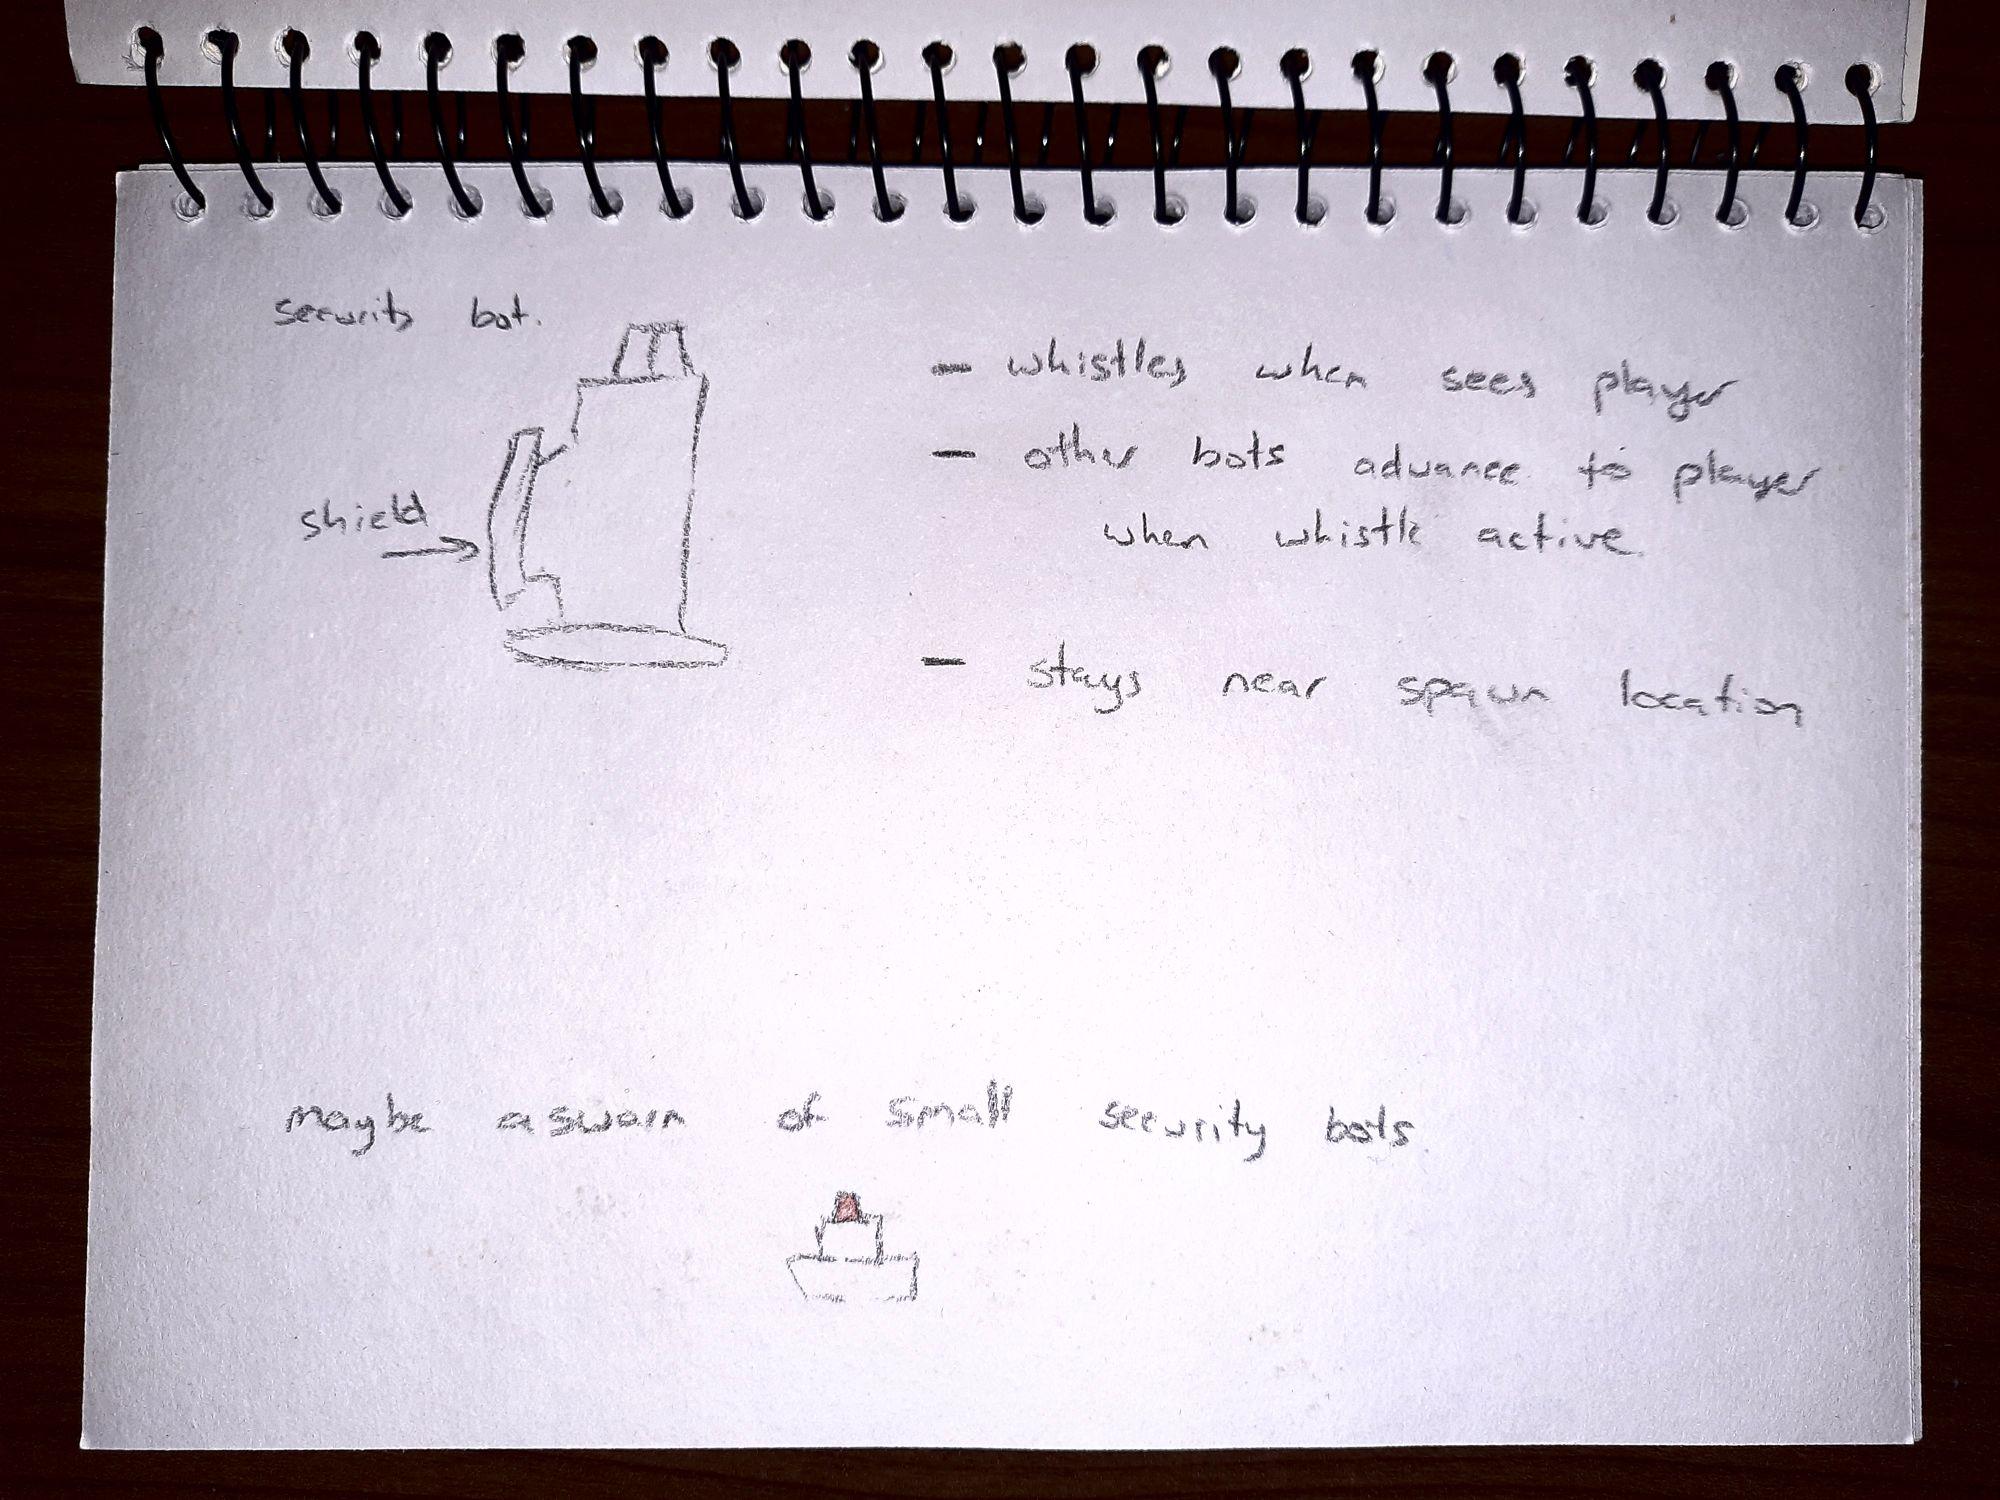 security bot.
- whistles when sees player
- other bots advance to player
when whistle active.
shield
- stays near spawn location
maybe a swarm of small security bots.